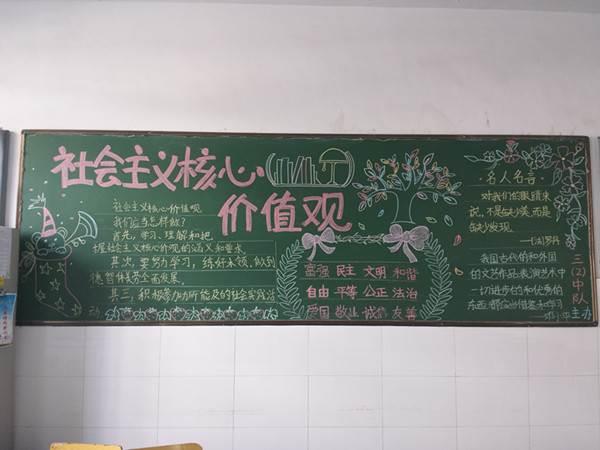 社会主义核心
价值观
社会主义核心价值观
我们应当怎样做?
首先,学习、理解和把
握社会主义核心价值观的涵义和要求
其次,要努力学习,练好本领,做到
德智体美劳全面发展。
其三,积极参加力所能及的社会实践活
动
富强 民主 文明 和谐
自由 平等 公正 法治
爱国 敬业 诚信 友善
名人名言
对我们的眼睛来
说,不是缺少美,而是
缺少发现
——[法]罗丹
我国古代的和外国
的文艺作品,表演艺术中
一切进步的和优秀的
东西,都应当借鉴和学习
三(2)中队
主办